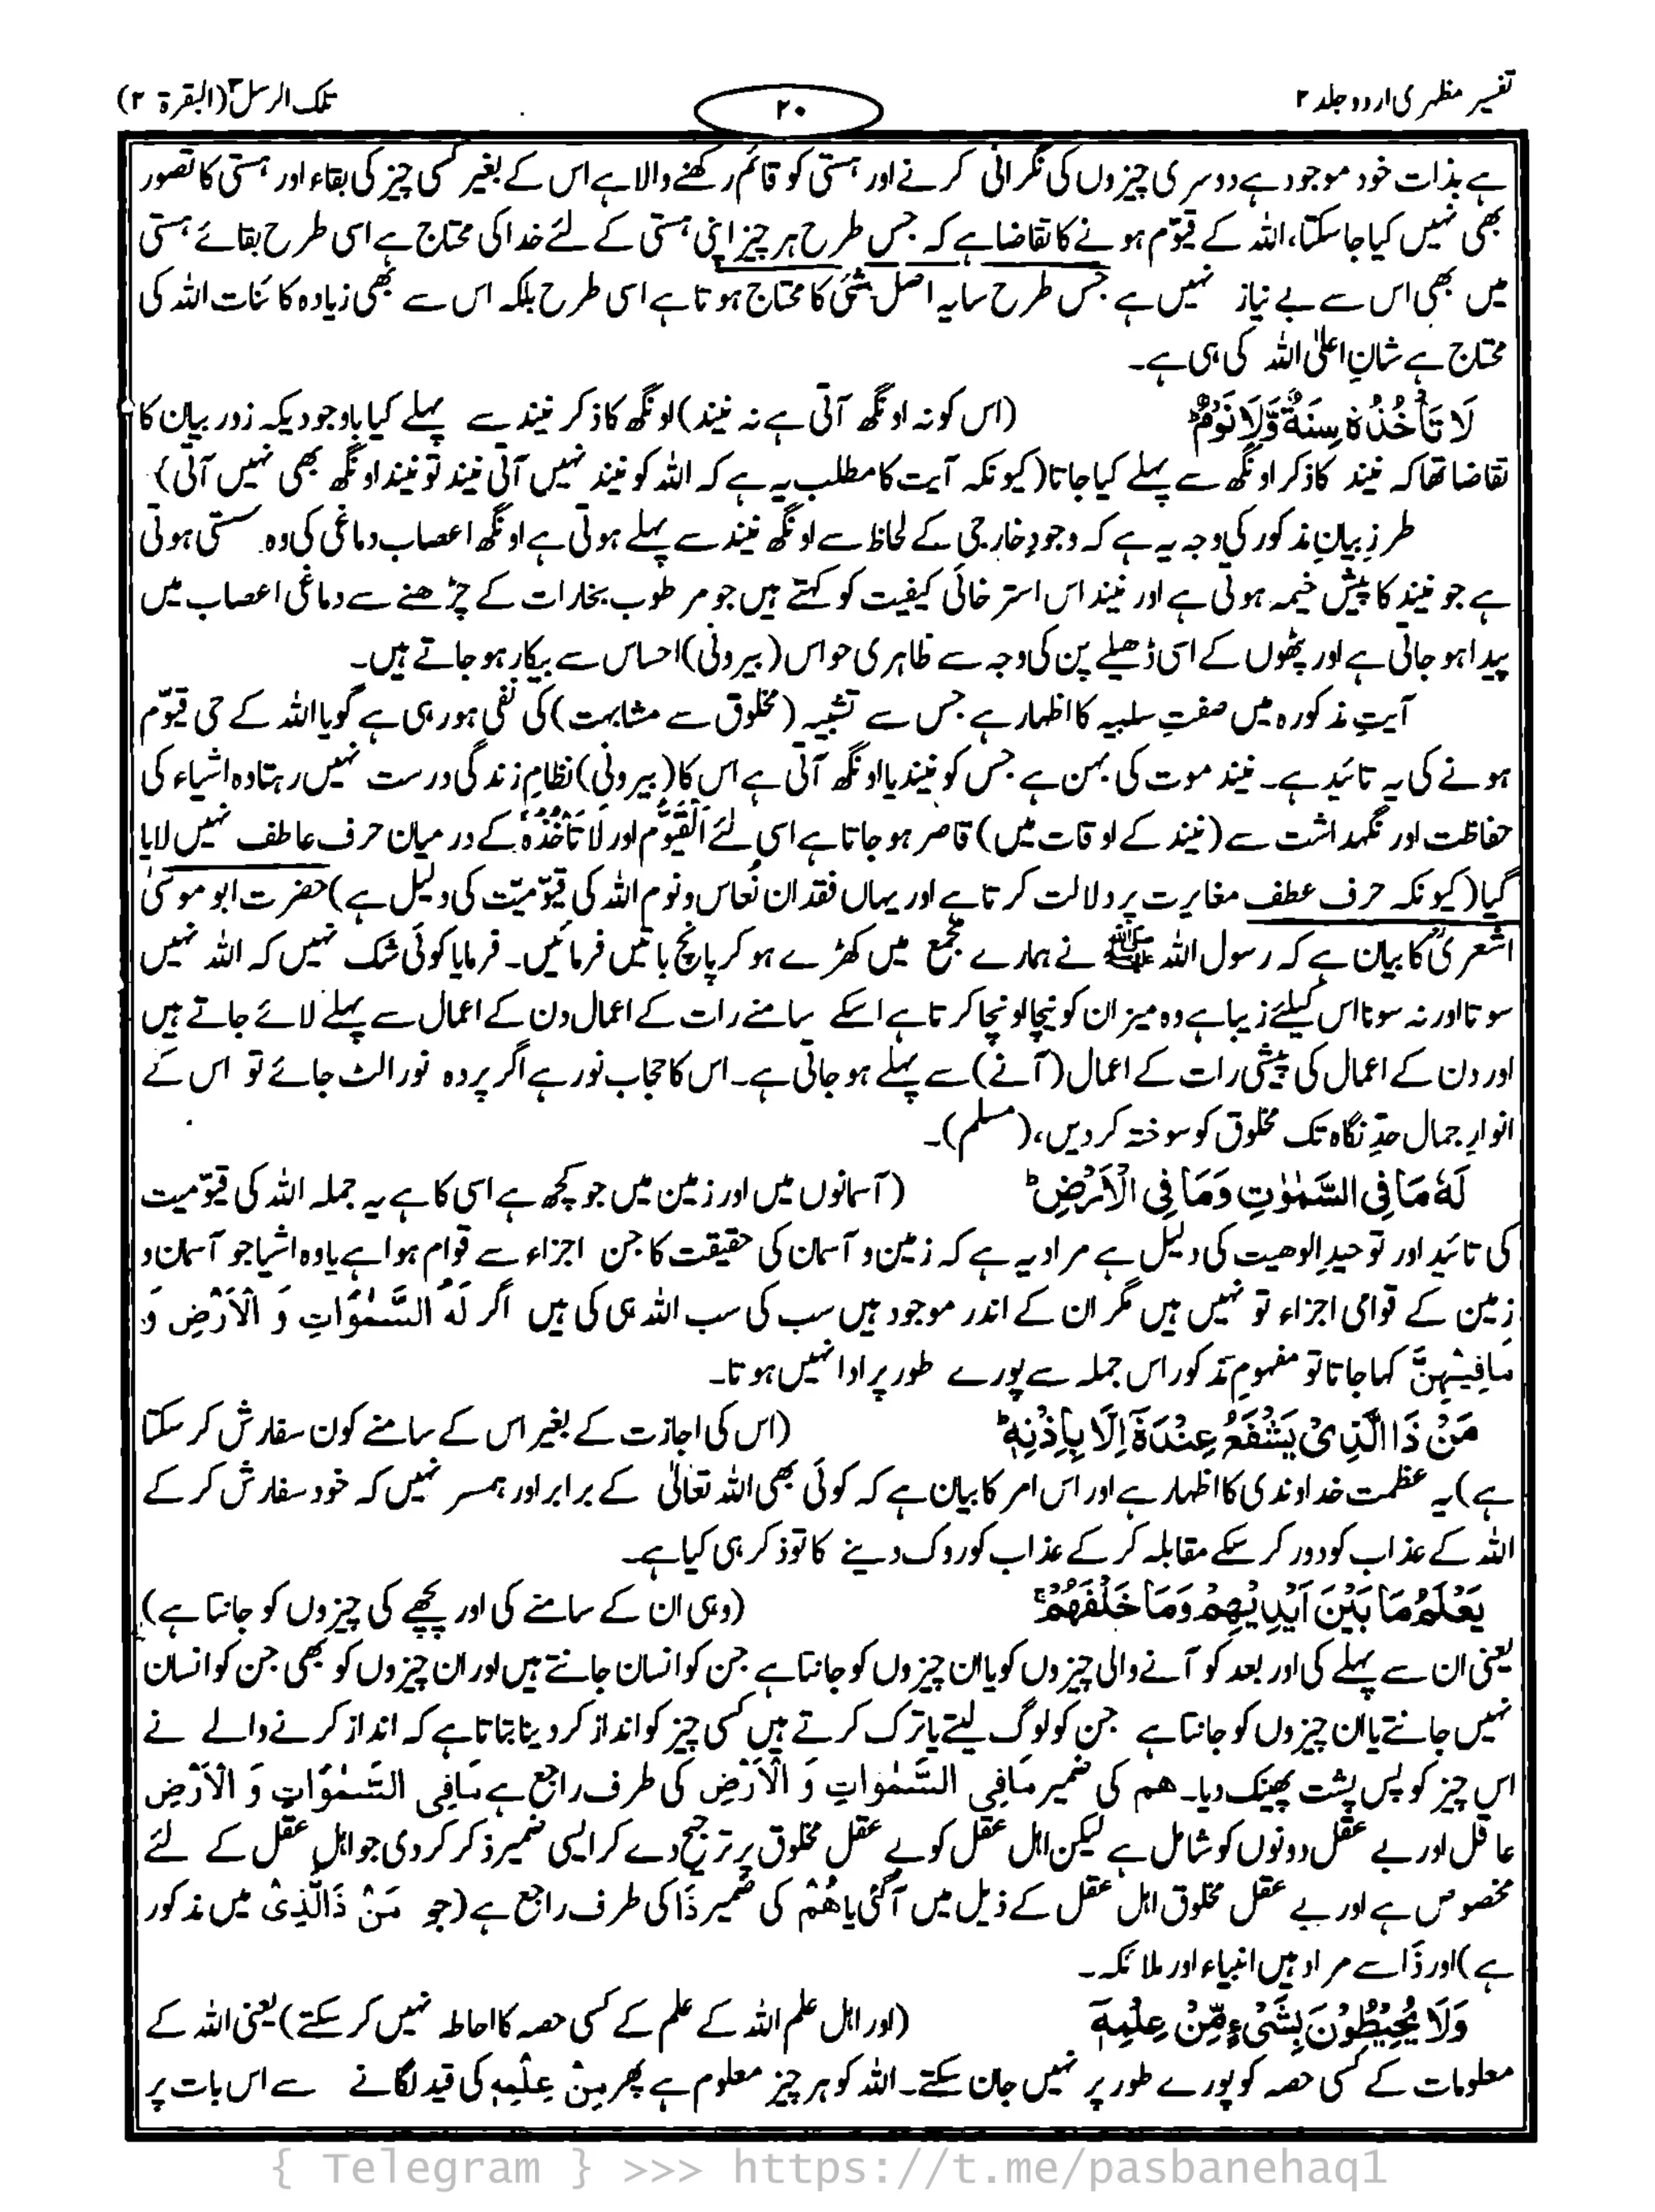 تفسیر مظہری اردو جلد ۲
۲۰
تلک الرسل ۳ (البقرۃ ۲)
ہے بذات خود موجود ہے دوسری چیزوں کی نگرانی کرنے اور ہستی کو قائم رکھنے والا ہے اس کے بغیر کسی چیز کی بقاء اور ہستی کا تصور
بھی نہیں کیا جا سکتا، اللہ کے قیّوم ہونے کا تقاضا ہے کہ جس طرح ہر چیز اپنی ہستی کے لئے خدا کی محتاج ہے اسی طرح بقائے ہستی
میں بھی اس سے بے نیاز نہیں ہے جس طرح سایہ اصل شئی کا محتاج ہوتا ہے اسی طرح بلکہ اس سے بھی زیادہ کائنات اللہ کی
محتاج ہے شانِ اعلیٰ اللہ کی ہی ہے۔
لَا تَأْخُذُهٗ سِنَةٌ وَّلَا نَوْمٌ ؕ (اس کو نہ اونگھ آتی ہے نہ نیند) اونگھ کا ذکر نیند سے پہلے کیا باوجودیکہ زور بیان کا
تقاضا تھا کہ نیند کا ذکر اونگھ سے پہلے کیا جاتا (کیونکہ آیت کا مطلب یہ ہے کہ اللہ کو نیند نہیں آتی نیند تو نیند اونگھ بھی نہیں آتی)
طرزِ بیانِ مذکور کی وجہ یہ ہے کہ وجودِ خارجی کے لحاظ سے اونگھ نیند سے پہلے ہوتی ہے اونگھ اعصاب دماغی کی وہ سستی ہوتی
ہے جو نیند کا پیش خیمہ ہوتی ہے اور نیند اس استرخائی کیفیت کو کہتے ہیں جو مرطوب بخارات کے چڑھنے سے دماغی اعصاب میں
پیدا ہو جاتی ہے اور پٹھوں کے اسی ڈھیلے پن کی وجہ سے ظاہری حواس (بیرونی) احساس سے بیکار ہو جاتے ہیں۔
آیتِ مذکورہ میں صفتِ سلبیہ کا اظہار ہے جس سے تشبیہ (مخلوق سے مشابہت) کی نفی ہو رہی ہے گویا اللہ کے حی قیّوم
ہونے کی یہ تائید ہے۔ نیند موت کی بہن ہے جس کو نیند یا اونگھ آتی ہے اس کا (بیرونی) نظامِ زندگی درست نہیں رہتا وہ اشیاء کی
حفاظت اور نگہداشت سے (نیند کے اوقات میں) قاصر ہو جاتا ہے اسی لئے اَلْقَیُّوْمُ اور لَا تَأْخُذُهٗ کے درمیان حرف عاطف نہیں لایا
گیا (کیونکہ حرف عطف مغایرت پر دلالت کرتا ہے اور یہاں فقدان نُعاس و نوم اللہ کی قیّومیّت کی دلیل ہے) حضرت ابو موسیٰ
اشعریؓ کا بیان ہے کہ رسول اللہ ﷺ نے ہمارے مجمع میں کھڑے ہو کر پانچ باتیں فرمائیں۔ فرمایا کوئی شک نہیں کہ اللہ نہیں
سوتا اور نہ سونا اس کیلئے زیبا ہے وہ میزان کو نیچا اونچا کرتا ہے اسکے سامنے رات کے اعمال دن کے اعمال سے پہلے لائے جاتے ہیں
اور دن کے اعمال کی پیشی رات کے اعمال (آنے) سے پہلے ہو جاتی ہے۔ اس کا حجاب نور ہے اگر پردہ نور الٹ جائے تو اس کے
انوارِ جمال حدِّ نگاہ تک مخلوق کو سوختہ کر دیں، (مسلم)۔
لَهٗ مَا فِی السَّمٰوٰتِ وَمَا فِی الْاَرْضِ ؕ (آسمانوں میں اور زمین میں جو کچھ ہے اسی کا ہے یہ جملہ اللہ کی قیّومیت
کی تائید اور توحیدِ الوھیت کی دلیل ہے مراد یہ ہے کہ زمین و آسمان کی حقیقت کا جن اجزاء سے قوام ہوا ہے یا وہ اشیا جو آسمان و
زمین کے قوامی اجزاء تو نہیں ہیں مگر ان کے اندر موجود ہیں سب کی سب اللہ ہی کی ہیں اگر لَهُ السَّمٰوَاتِ وَ الْاَرْضِ وَ
مَافِیْهِنَّ کہا جاتا تو مفہومِ مذکور اس جملہ سے پورے طور پر ادا نہیں ہوتا۔
مَنْ ذَا الَّذِیْ یَشْفَعُ عِنْدَهٗٓ اِلَّا بِاِذْنِهٖ ؕ (اس کی اجازت کے بغیر اس کے سامنے کون سفارش کر سکتا
ہے) یہ عظمت خداوندی کا اظہار ہے اور اس امر کا بیان ہے کہ کوئی بھی اللہ تعالیٰ کے برابر اور ہمسر نہیں کہ خود سفارش کر کے
اللہ کے عذاب کو دور کر سکے مقابلہ کر کے عذاب کو روک دینے کا تو ذکر ہی کیا ہے۔
یَعْلَمُ مَا بَیْنَ اَیْدِیْهِمْ وَمَا خَلْفَهُمْ ۚ (وہی ان کے سامنے کی اور پیچھے کی چیزوں کو جانتا ہے)
یعنی ان سے پہلے کی اور بعد کو آنے والی چیزوں کو یا ان چیزوں کو جانتا ہے جن کو انسان جانتے ہیں اور ان چیزوں کو بھی جن کو انسان
نہیں جانتے یا ان چیزوں کو جانتا ہے جن کو لوگ لیتے یا ترک کرتے ہیں کسی چیز کو انداز کر دینا بتاتا ہے کہ انداز کرنے والے نے
اس چیز کو پس پشت پھینک دیا۔ ھم کی ضمیر مَافِی السَّمٰوَاتِ وَ الْاَرْضِ کی طرف راجع ہے مَافِی السَّمٰوَاتِ وَ الْاَرْضِ
عاقل اور بے عقل دونوں کو شامل ہے لیکن اہل عقل کو بے عقل مخلوق پر ترجیح دے کر ایسی ضمیر ذکر کر دی جو اہل عقل کے لئے
مخصوص ہے اور بے عقل مخلوق اہل عقل کے ذیل میں آ گئی یا هُمْ کی ضمیر ذَا کی طرف راجع ہے (جو مَنْ ذَالَّذِیْ میں مذکور
ہے) اور ذَا سے مراد ہیں انبیاء اور ملائکہ۔
وَلَا یُحِیْطُوْنَ بِشَیْءٍ مِّنْ عِلْمِهٖٓ (اور اہل علم اللہ کے علم کے کسی حصہ کا احاطہ نہیں کر سکتے) یعنی اللہ کے
معلومات کے کسی حصہ کو پورے طور پر نہیں جان سکتے۔ اللہ کو ہر چیز معلوم ہے پھر مِنْ عِلْمِهٖ کی قید لگانے سے اس بات پر
{ Telegram } >>> https://t.me/pasbanehaq1